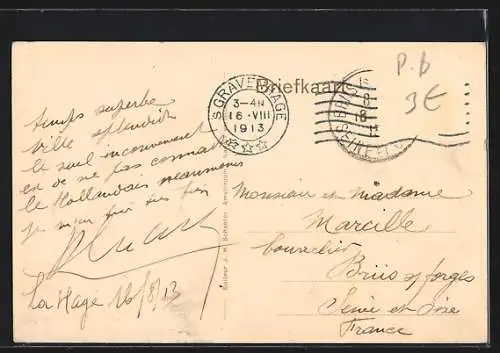 Briefkaart
'S GRAVENHAGE
3-4N
16·VIII
1913
P.b
3€
temps superbe
ville splendide
le seul inconvenient
est de ne pas connaitre
le Hollandais neanmoins
je m'en tire tres bien
La Haye 16/8/13
Monsieur et Madame
Marcille
Bourrelier
Briis s/ forges
Seine et Oise
France